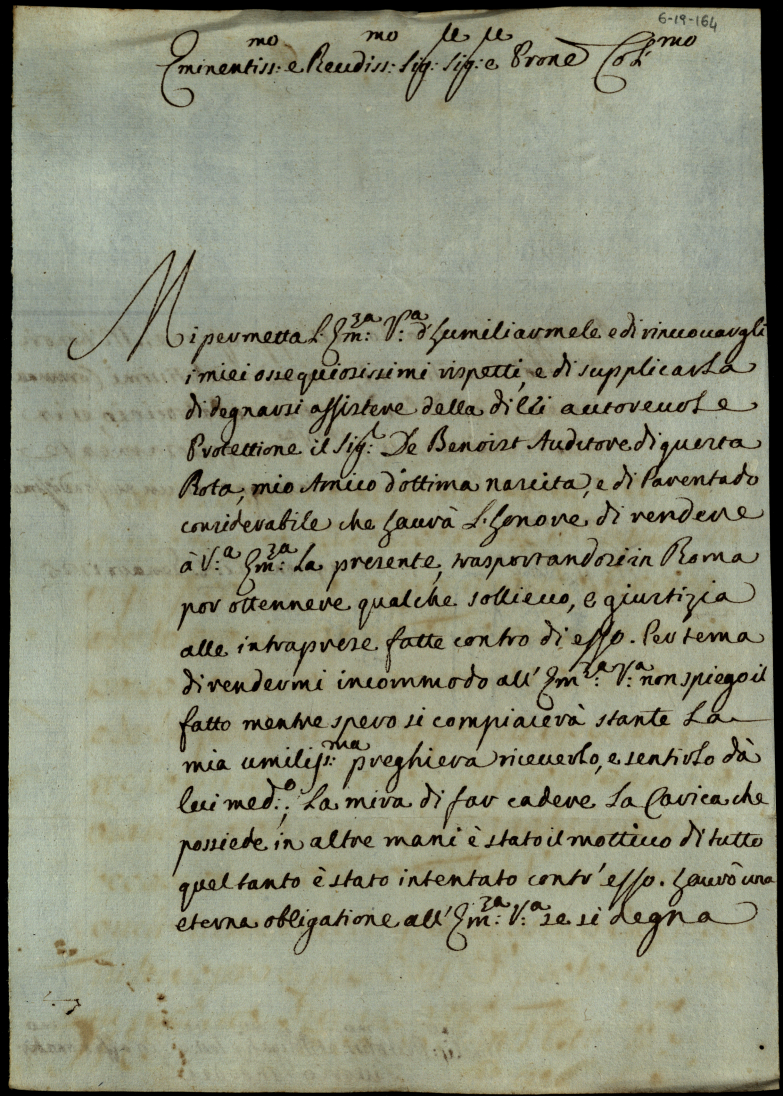 6-19-164
Eminentiss:mo e Reudiss:mo Sig:re Sig:re e Prone Col:mo
Mi permetta L'Em:za V:a d'humiliarmele e di rinuouargli
i miei ossequiosissimi rispetti, e di supplicarla
di degnarsi assistere della di lei autoreuole
Protettione il Sig:r De Benoist Auditore di questa
Rota, mio Amico d'ottima nascita, e di Parentado
considerabile che haurà L'honore di rendere
à V:a Em:za la presente, trasportandosi in Roma
por ottennere qualche sollieuo, e giustizia
alle intraprese fatte contro di esso. Per tema
di rendermi incommodo all'Em:za V:a non spiego il
fatto mentre spero si compiacerà stante la
mia umiliss:ma preghiera riceuerlo, e sentirlo dà
lui med:o; La mira di far cadere la Carica che
possiede in altre mani è stato il mottiuo di tutto
quel tanto è stato intentato contr'esso. Haurò una
eterna obligatione all'Em:za V:a se si degna